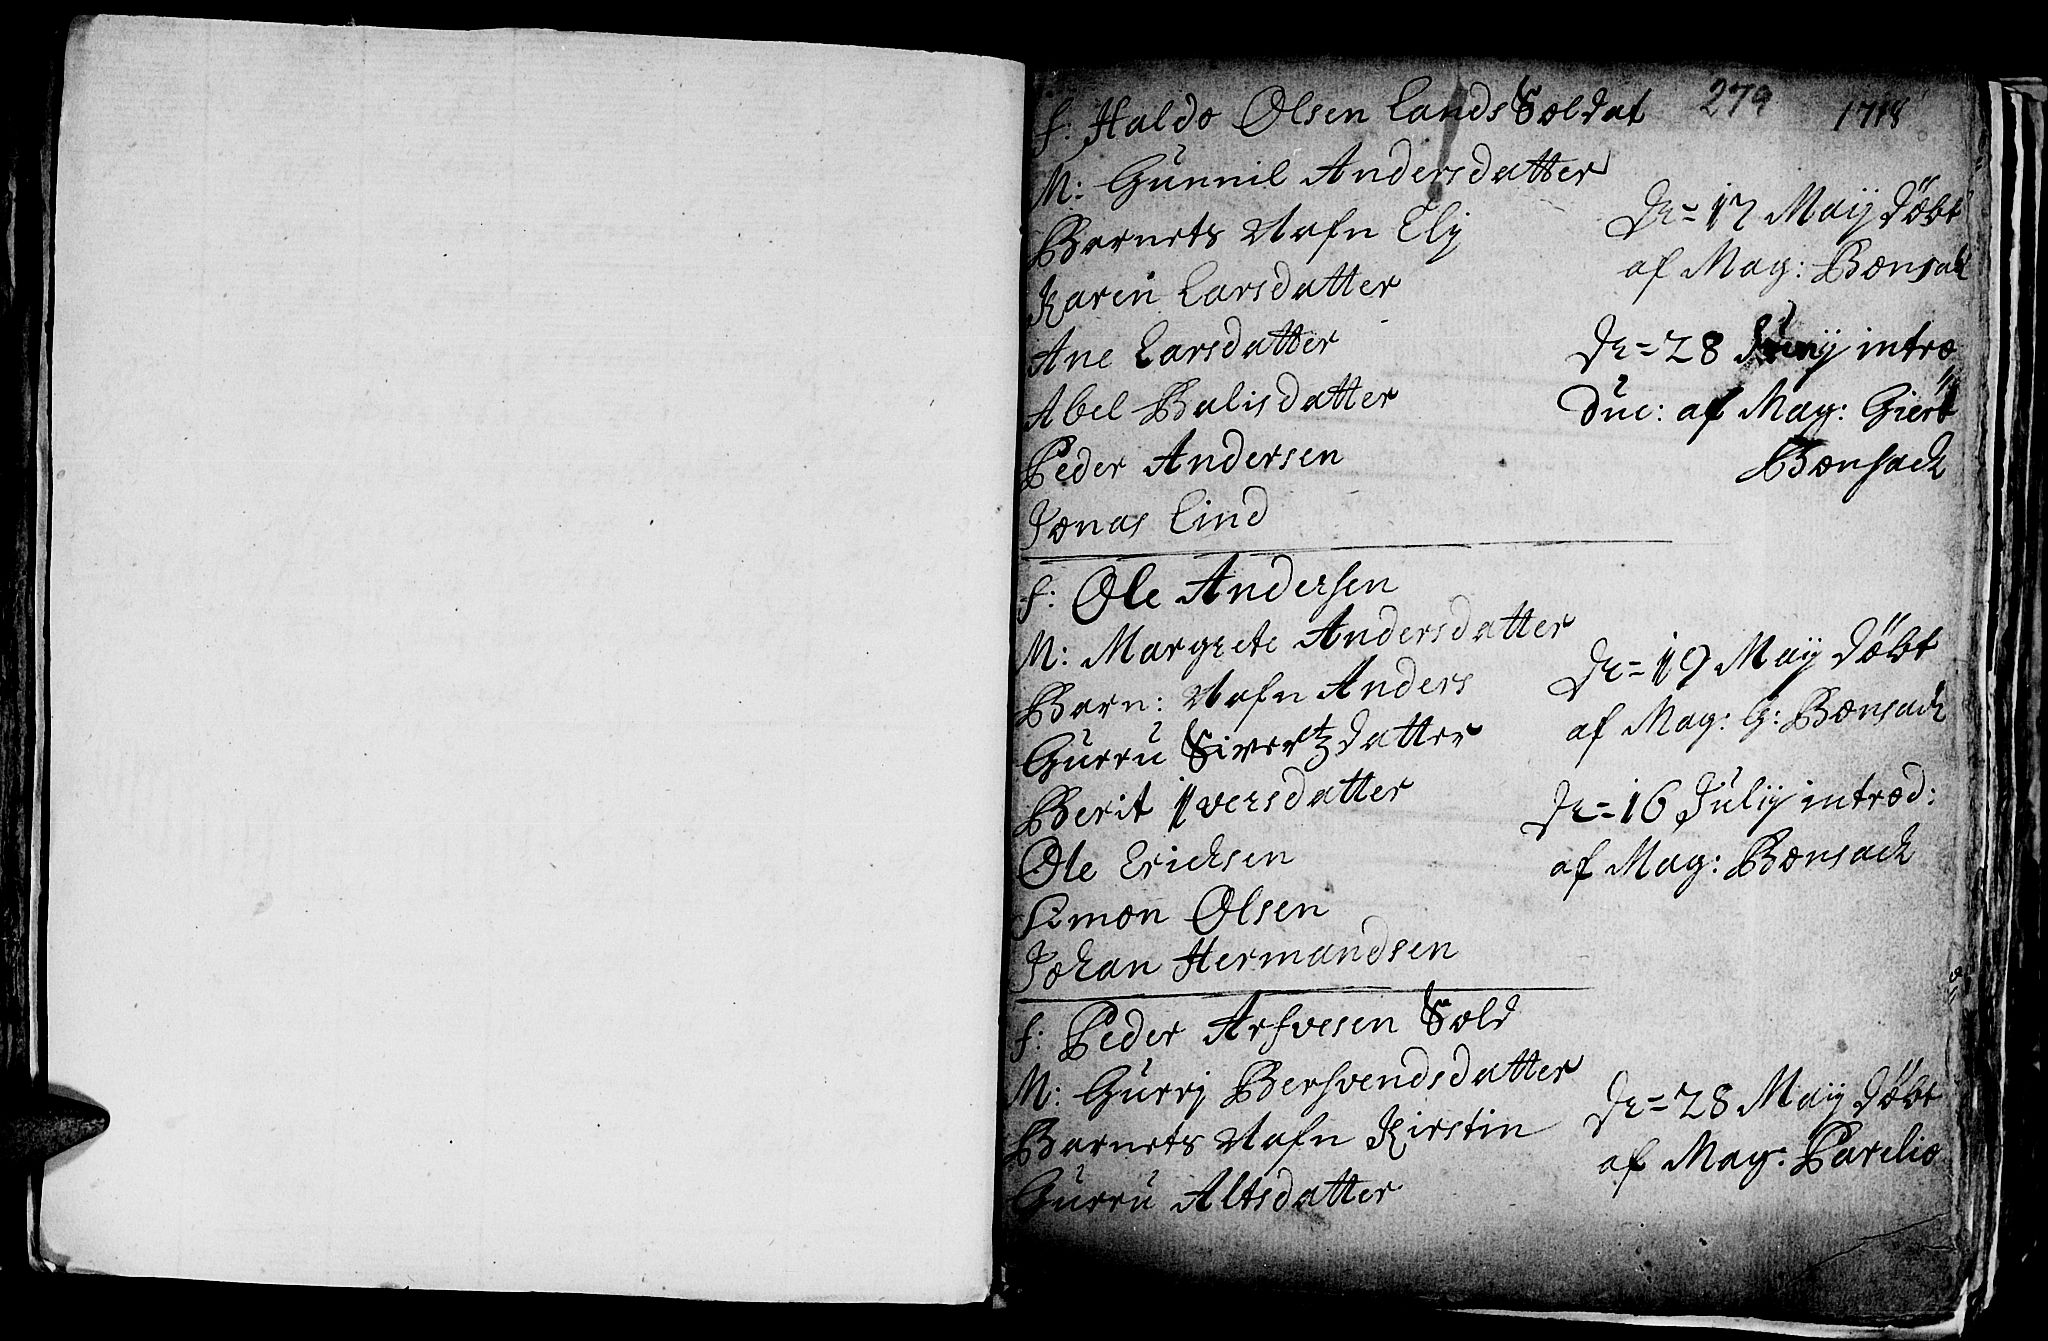 279 1718
f: Haldo Olsen Lands Soldat
M: Gunnil Andersdatter
Barnets Nafn Elj
Karen Larsdatter
Ane Larsdatter
Abel Balisdatter
Peder Andersen
Jonas Lind
D= 17 Maij døbt
af Mag: Bonsak
D= 28 Junij intro
duc: af Mag: Giert
Bonsach
f: Ole Andersen
M: Margrete Andersdatter
Barn: Nafn Anders
Gurru Sivertzdatter
Berit Iversdatter
Ole Erichsen
Simon Olsen
Johan Hermandsen
D= 19 Maij døbt
af Mag: G: Bonsach
D= 16 Julij introd:
af Mag: Bonsach
f: Peder Arfvesen Sold
M: Gurrj Bersvendsdatter
Barnets Nafn Kirstin
Gurru Altsdatter
D= 28 Maij døbt
af Mag: Parelio